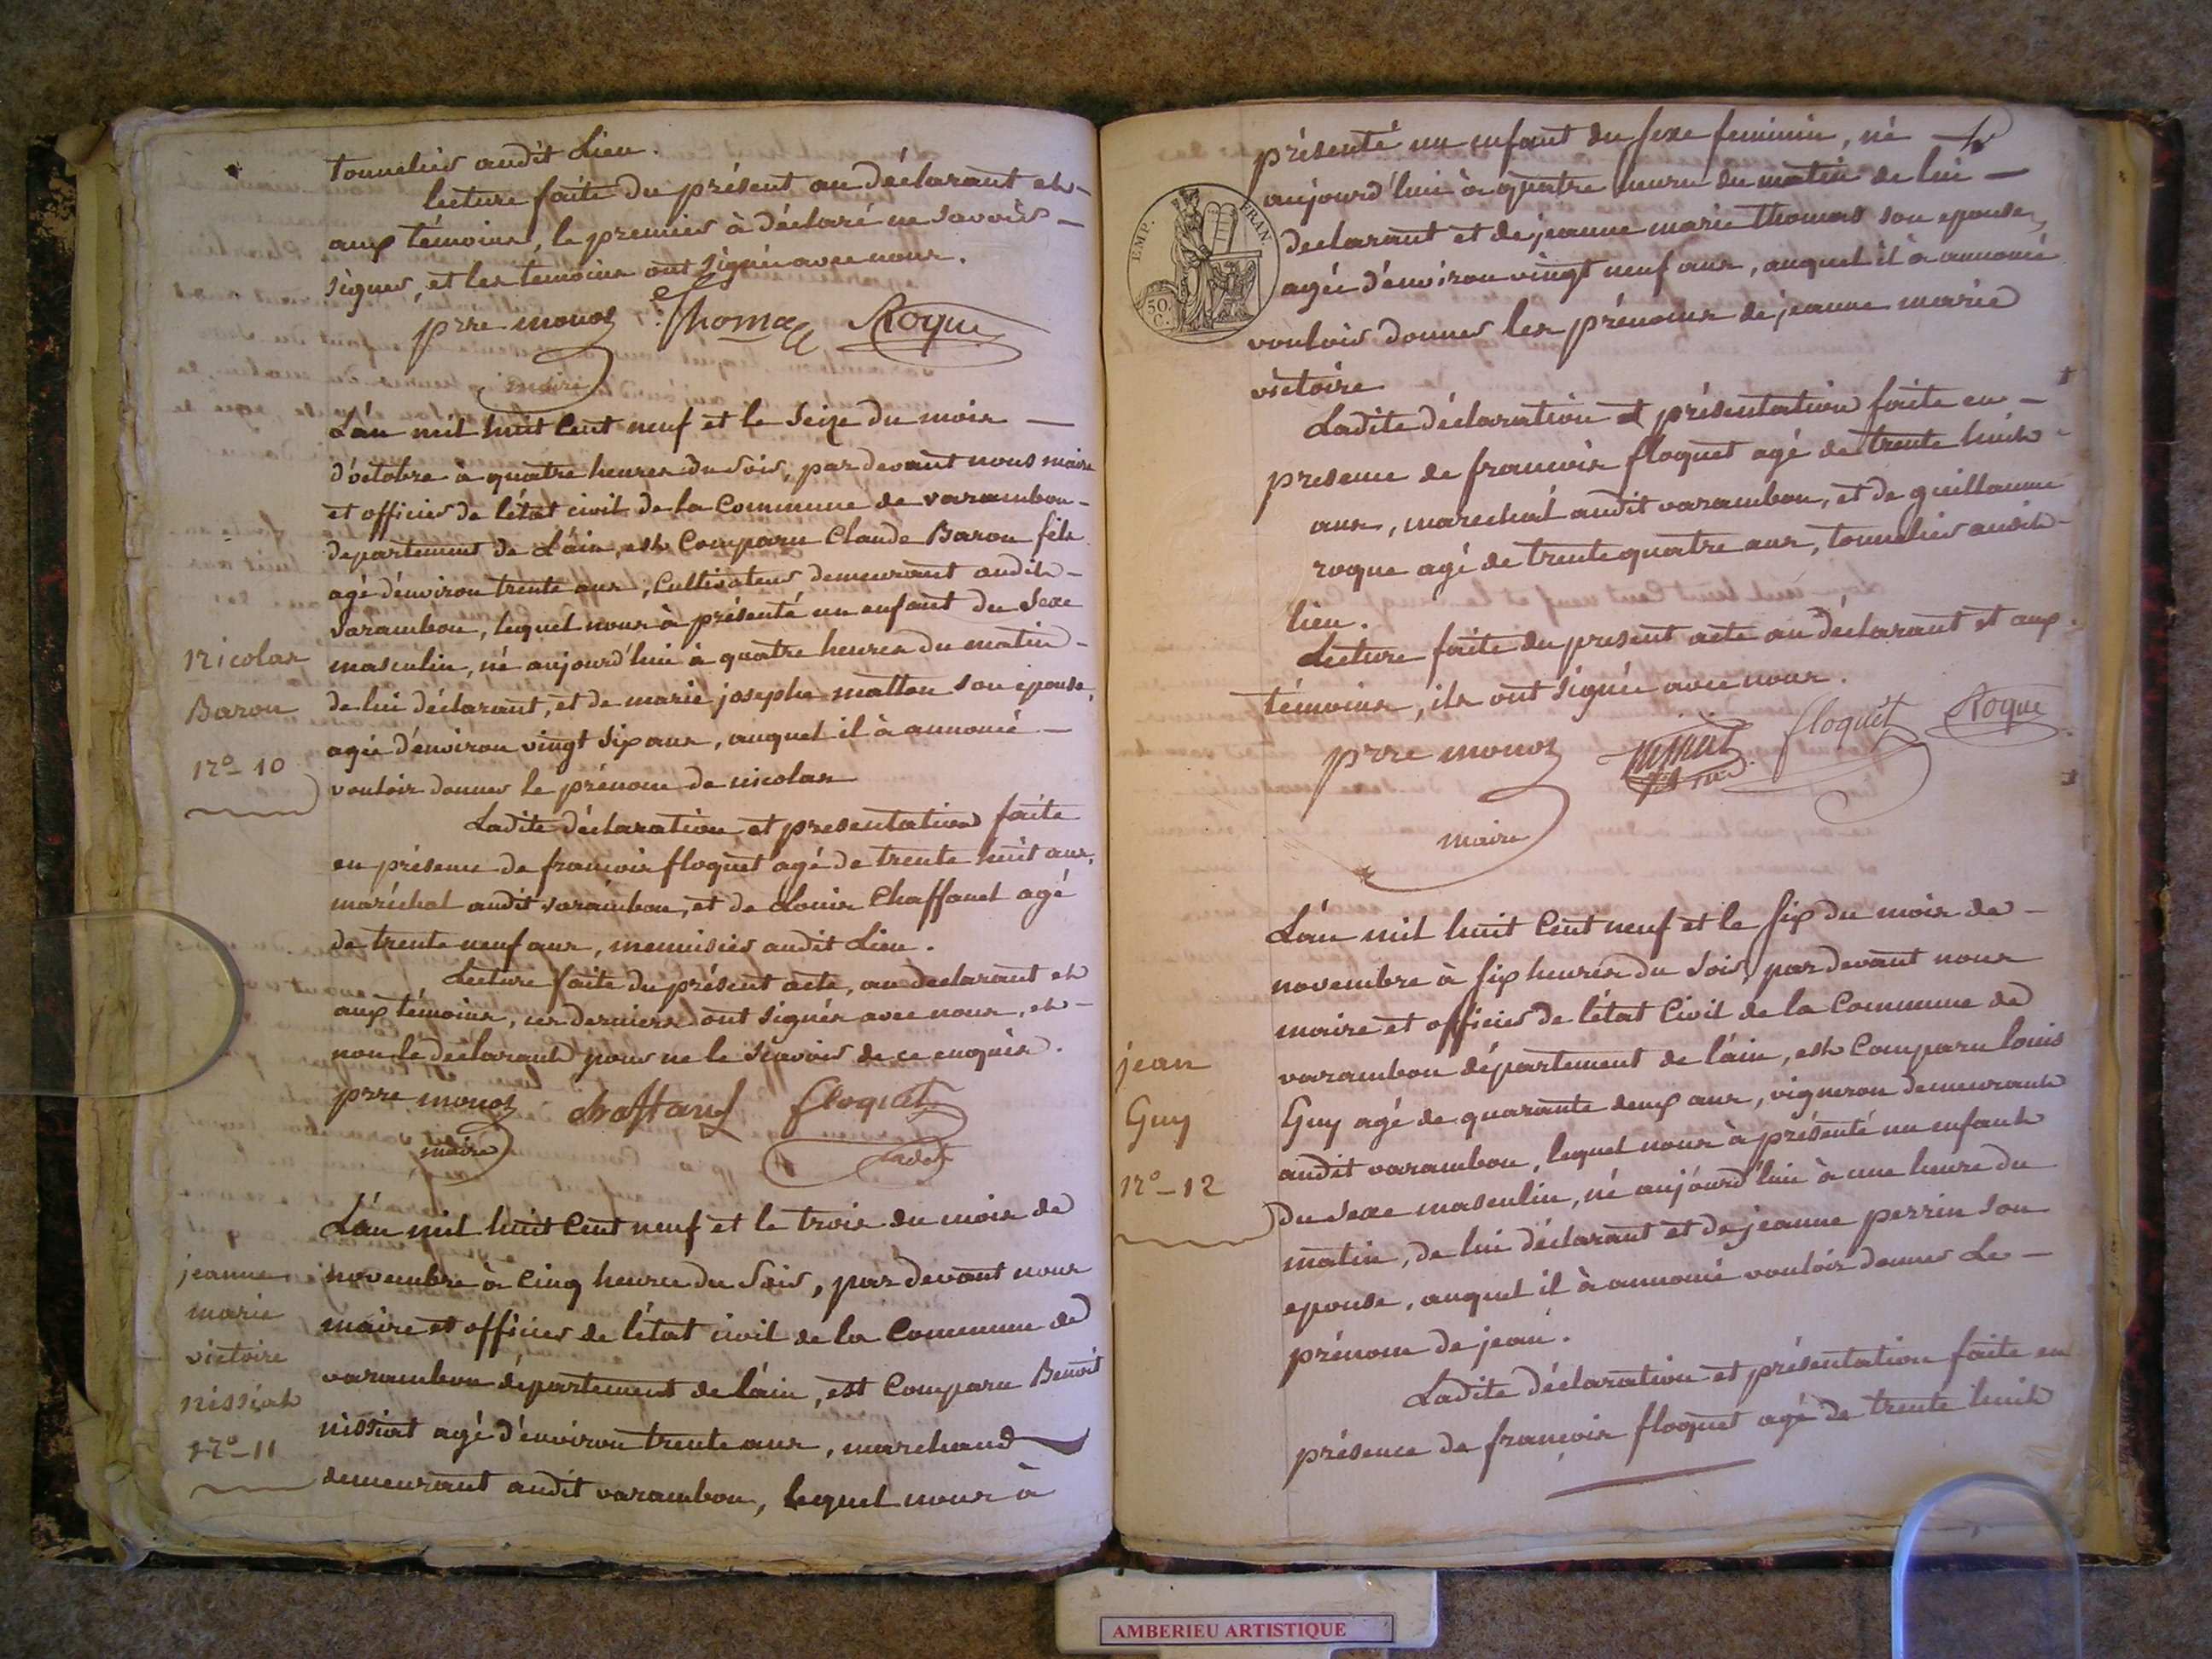 tonnelier audit Lieu.
lecture faite du présent au déclarant et
aux témoins, le premier à déclaré ne savoir
signer, et les temoins ont signés avec nous.
prre monoz Thomas Roque
maire
L'an mil huit Cent neuf et le Seize du mois
d'octobre à quatre heures du soir, par devant nous maire
et officier de l'état civil de la Commune de varambon
departement de L'ain, est Comparu Claude Baron fils
agé d'environ trente ans, Cultivateur demeurant audit
varambon, lequel nous à présenté un enfant du Sexe
masculin, né aujourd'hui à quatre heures du matin
de lui déclarant, et de marie josephe matton son epouse,
agée d'environ vingt six ans, auquel il à annoncé
vouloir donner le prénom de nicolas
nicolas
Baron
n.o 10
Ladite déclaration et presentation faite
en présence de francois floquet agé de trente huit ans,
maréchal audit varambon, et de Louis Chaffanet agé
de trente neuf ans, menuisier audit Lieu.
Lecture faite du présent acte, au declarant et
aux témoins, ces derniers ont signés avec nous, et
non le declarant pour ne le scavoir de ce enquis.
prre monoz Floquet
maire
L'an mil huit Cent neuf et le trois du mois de
novembre à Cinq heures du Soir, par devant nous
maire et officier de l'état civil de la Commune de
varambon département de l'ain, est Comparu Benoit
nissiat agé d'environ trente ans, marchand
demeurant audit varambon, lequel nous à
jeanne
marie
victoire
nissiat
n.o 11
présenté un enfant du sexe feminin, né
aujourd'hui à quatre heures du matin de lui
declarant et de jeanne marie thomas son epouse,
agée d'environ vingt neuf ans, auquel il à annoncé
vouloir donner les prénoms de jeanne marie
victoire
EMP. FRAN.
50 C.
Ladite déclaration et présentation faite en
presence de francois floquet agé de trente huit
ans, marechal audit varambon, et de guillaume
roque agé de trente quatre ans, tonnelier audit
lieu.
Lecture faite du present acte au déclarant et aux
témoins, ils ont signés avec nous.
prre monoz floquet Roque
maire
L'an mil huit Cent neuf et le six du mois de
novembre à six heures du soir, par devant nous
maire et officier de l'état Civil de la Commune de
varambon département de l'ain, est Comparu louis
Guy agé de quarante deux ans, vigneron demeurant
audit varambon, lequel nous à présenté un enfant
du sexe masculin, né aujourd'hui à une heure du
matin, de lui déclarant et de jeanne perrin son
epouse, auquel il à annoncé vouloir donner Le
prénom de jean.
jean
Guy
n.o 12
Ladite déclaration et présentation faite en
présence de françois floquet agé de trente huit
AMBERIEU ARTISTIQUE